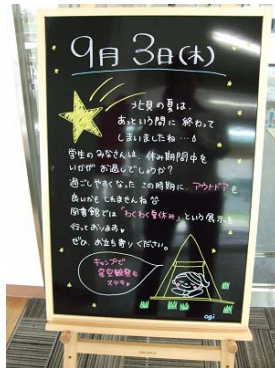 9月3日(木)
北見の夏は、
あっという間に終わって
しまいましたね…
学生のみなさんは、休み期間中を
いかがお過しでしょうか?
過ごしやすくなったこの時期に、アウトドアも
良いかもしれませんね
図書館では「わくわく夏休み」という展示を
行っております。
ぜひ、お立ち寄りください。
キャンプで
星空観察も
ステキ
ogi